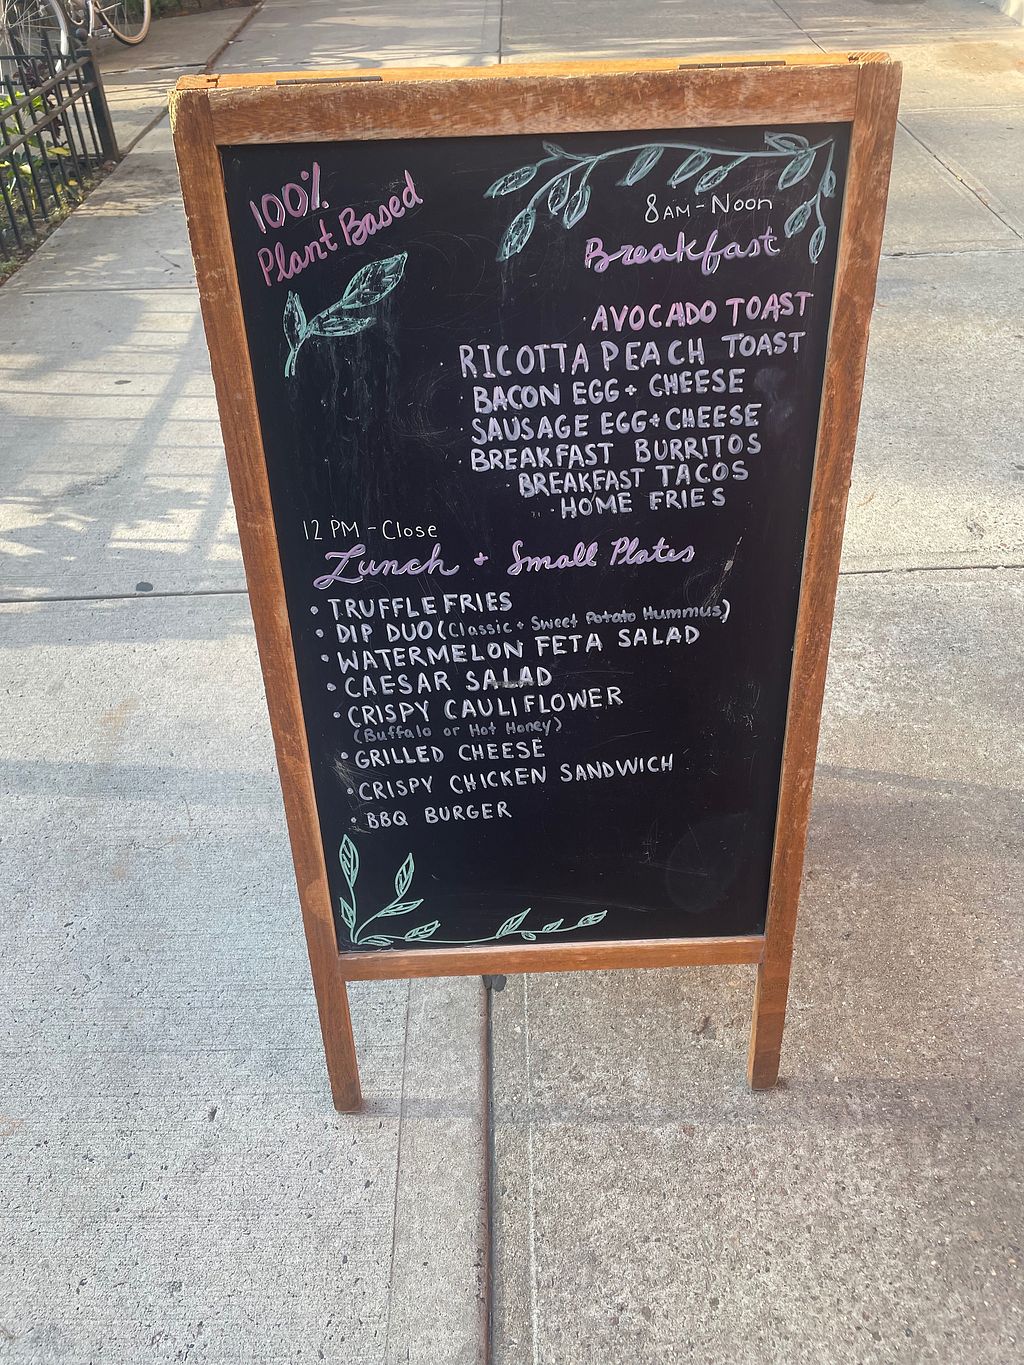 100%
Plant Based
8AM-Noon
Breakfast
· AVOCADO TOAST
· RICOTTA PEACH TOAST
· BACON EGG + CHEESE
· SAUSAGE EGG + CHEESE
· BREAKFAST BURRITOS
· BREAKFAST TACOS
· HOME FRIES
12 PM - Close
Lunch + Small Plates
• TRUFFLE FRIES
• DIP DUO (Classic + Sweet Potato Hummus)
• WATERMELON FETA SALAD
• CAESAR SALAD
• CRISPY CAULIFLOWER
(Buffalo or Hot Honey)
• GRILLED CHEESE
• CRISPY CHICKEN SANDWICH
• BBQ BURGER